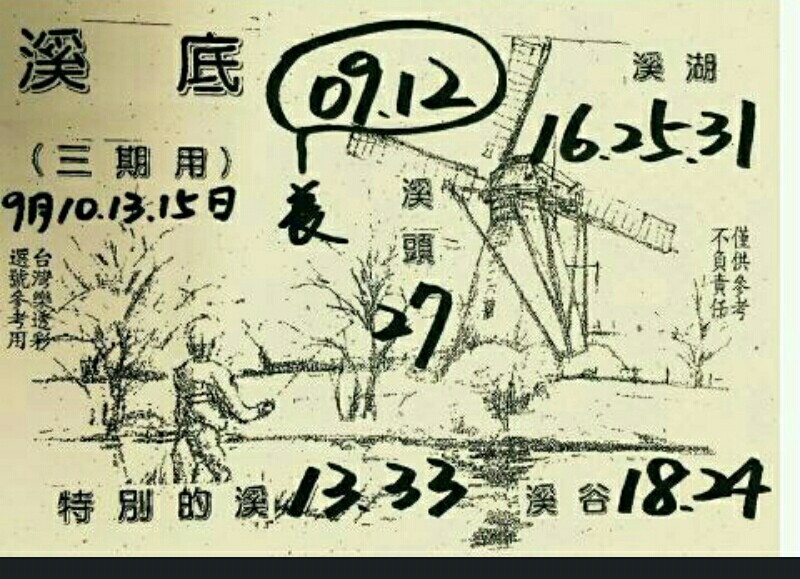 溪底
09.12
溪湖
16.25.31
(三期用)
9月10.13.15日
養
溪頭
27
僅供參考
不負責任
台灣樂透彩
選號參考用
特別的溪 13.33
溪谷 18.24